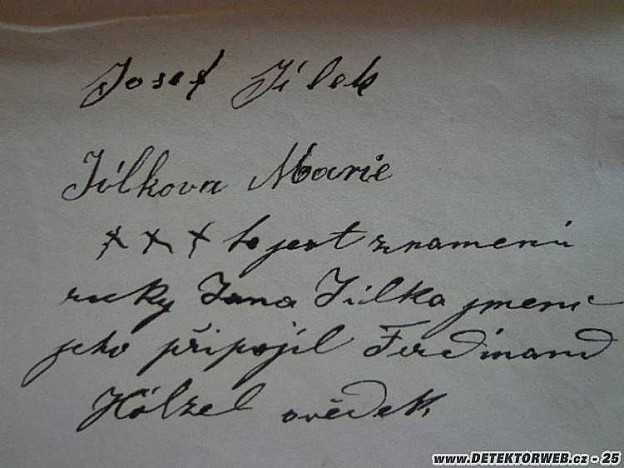 Josef Jílek
Jílkova Marie
+++ to jest znamení
ruky Jana Jílka jmeno
jeho připojil Ferdinand
Hölzel svědek
www.DETEKTORWEB.cz - 25